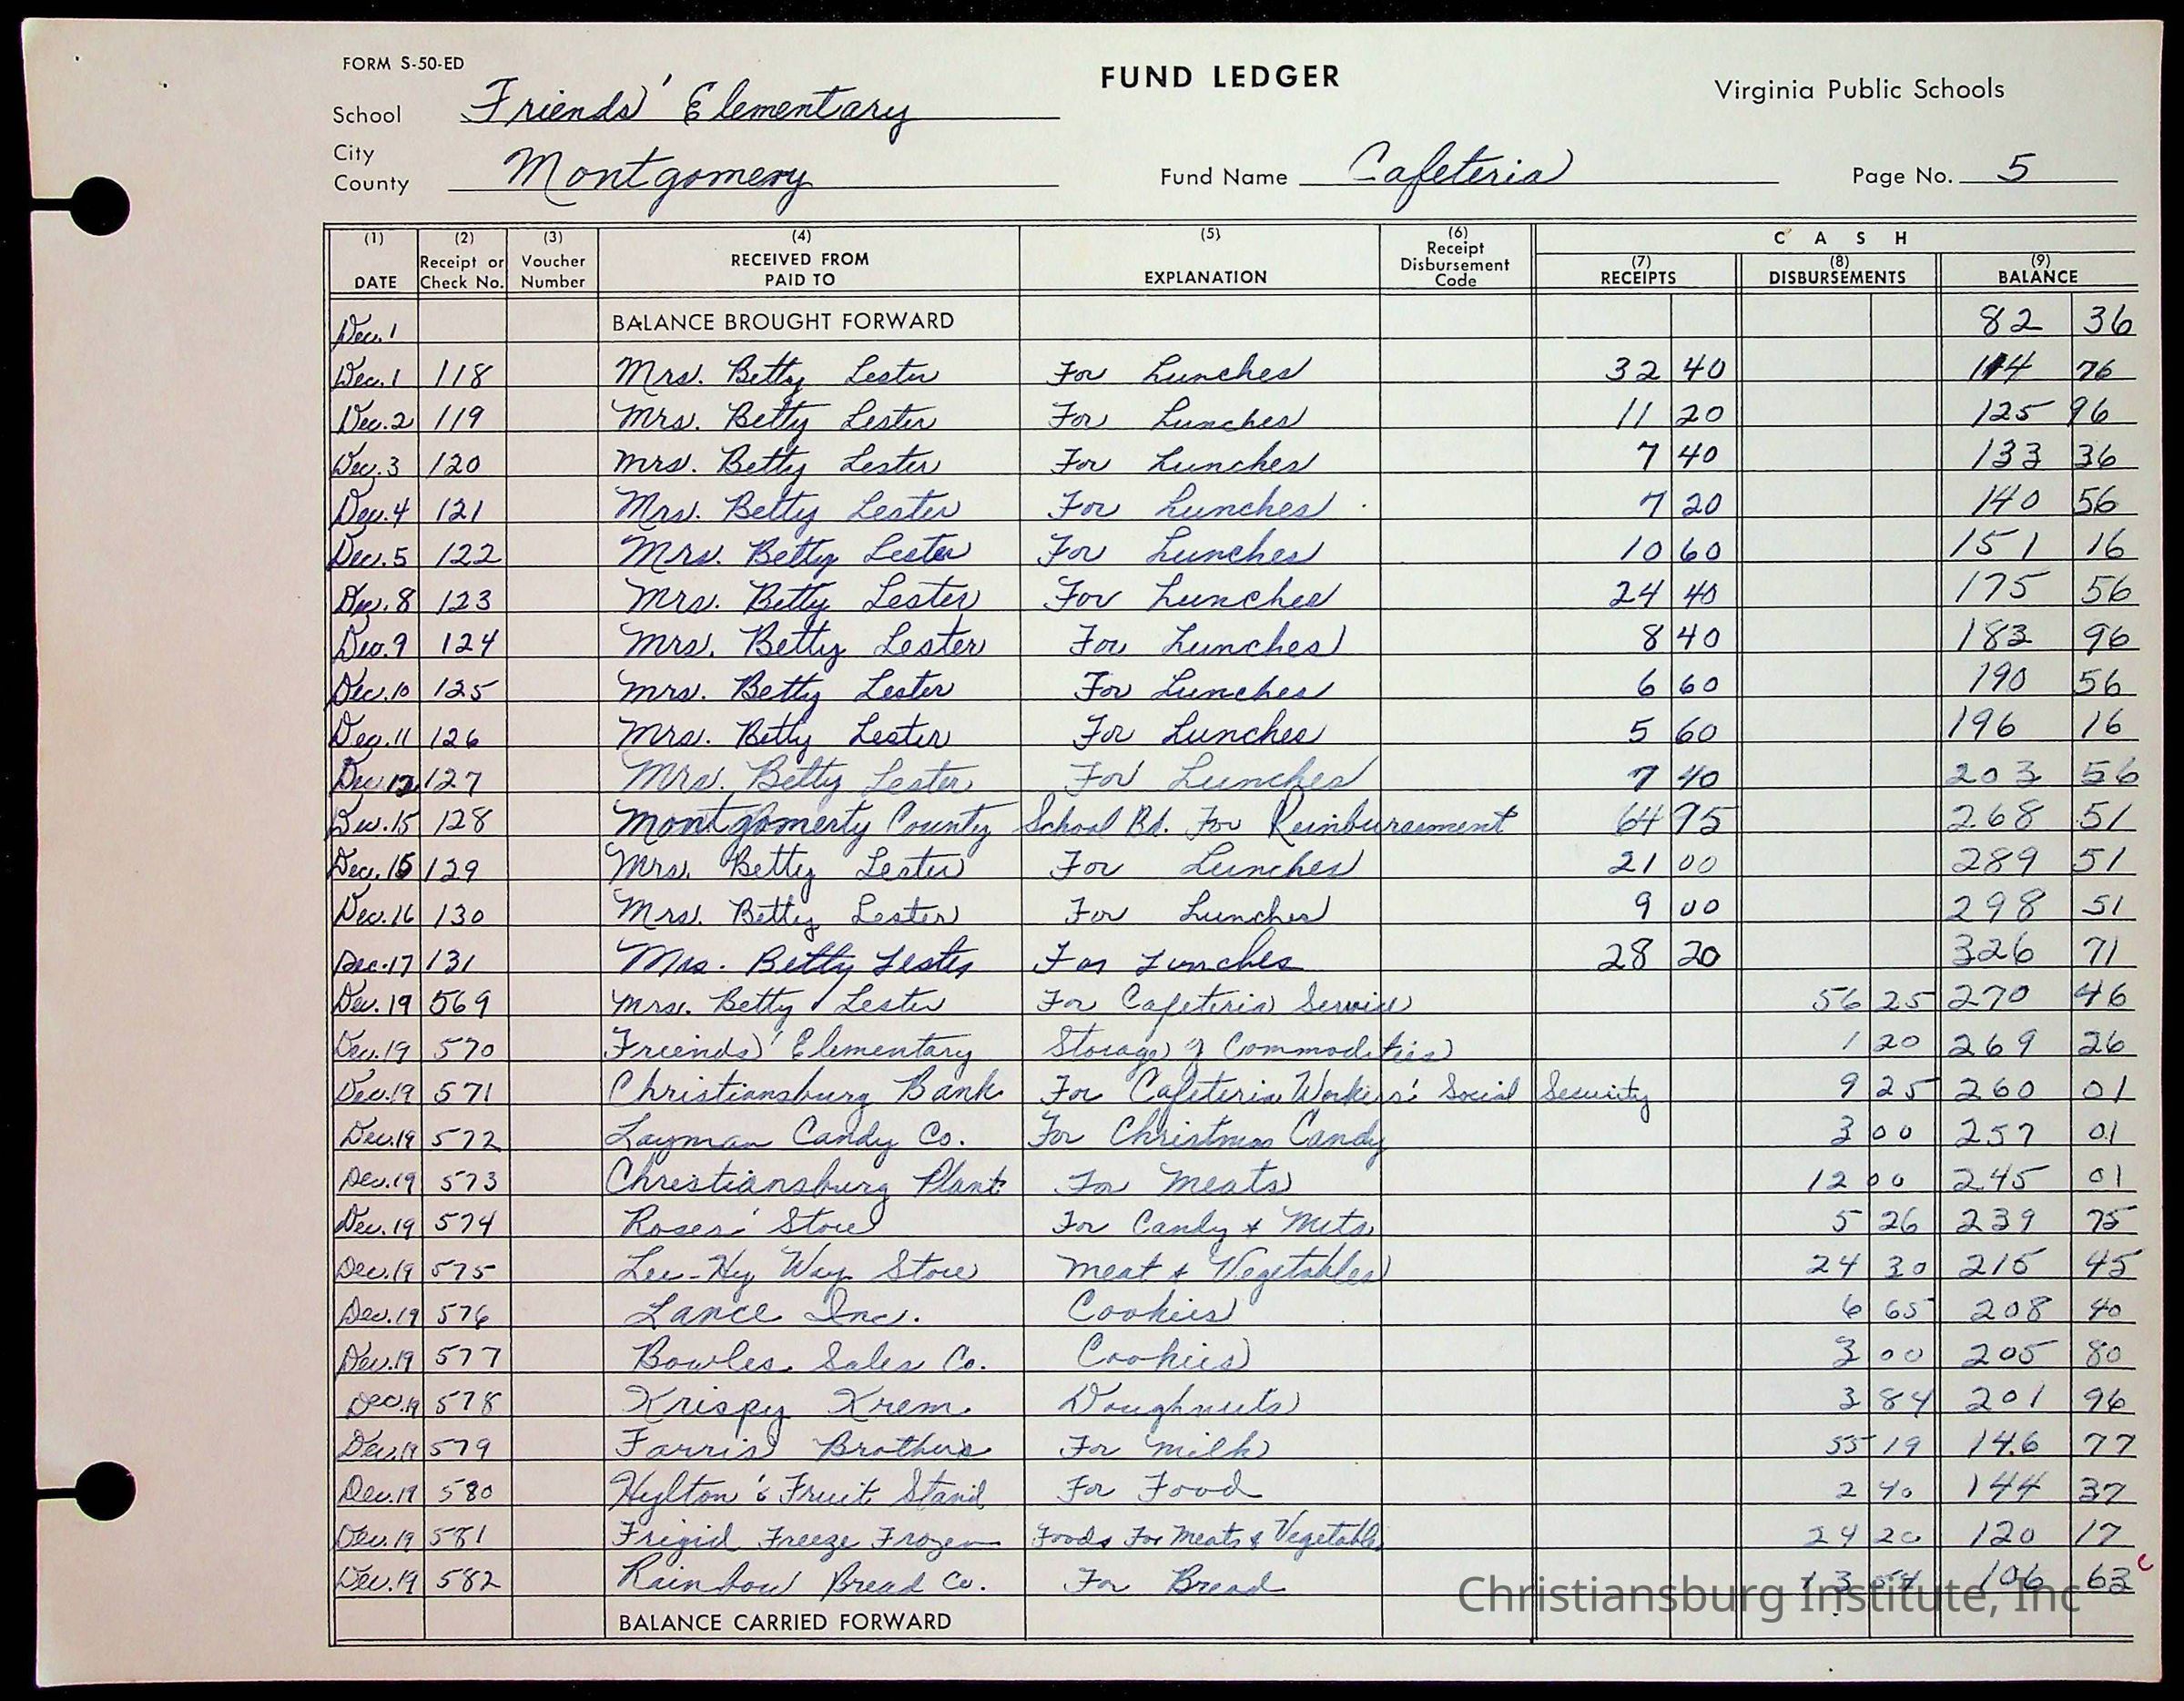 FORM S-50-ED
FUND LEDGER
Virginia Public Schools
School Friends' Elementary
City
County Montgomery
Fund Name Cafeteria Page No. 5
(1) (2) (3) (4) (5) (6) C A S H
DATE Receipt or Check No. Voucher Number RECEIVED FROM PAID TO EXPLANATION Receipt Disbursement Code (7) RECEIPTS (8) DISBURSEMENTS (9) BALANCE
Dec. 1 BALANCE BROUGHT FORWARD 82 36
Dec. 1 118 Mrs. Betty Lester For Lunches 32 40 114 76
Dec. 2 119 Mrs. Betty Lester For Lunches 11 20 125 96
Dec. 3 120 Mrs. Betty Lester For Lunches 7 40 133 36
Dec. 4 121 Mrs. Betty Lester For Lunches 7 20 140 56
Dec. 5 122 Mrs. Betty Lester For Lunches 10 60 151 16
Dec. 8 123 Mrs. Betty Lester For Lunches 24 40 175 56
Dec. 9 124 Mrs. Betty Lester For Lunches 8 40 183 96
Dec. 10 125 Mrs. Betty Lester For Lunches 6 60 190 56
Dec. 11 126 Mrs. Betty Lester For Lunches 5 60 196 16
Dec 12 127 Mrs. Betty Lester For Lunches 7 40 203 56
Dec. 15 128 Montgomerty County School Bd. For Reinbursement 64 95 268 51
Dec. 15 129 Mrs. Betty Lester For Lunches 21 00 289 51
Dec. 16 130 Mrs. Betty Lester For Lunches 9 00 298 51
Dec. 17 131 Mrs. Betty Lester For Lunches 28 20 326 71
Dec. 19 569 Mrs. Betty Lester For Cafeteria Service 56 25 270 46
Dec. 19 570 Friends' Elementary Storage of Commodities 1 20 269 26
Dec. 19 571 Christiansburg Bank For Cafeteria Workers' Social Security 9 25 260 01
Dec. 19 572 Layman Candy Co. For Christmas Candy 3 00 257 01
Dec. 19 573 Christiansburg Plant For Meats 12 00 245 01
Dec. 19 574 Roses' Store For Candy & Mets 5 26 239 75
Dec. 19 575 Lee-Hy Way Store Meat & Vegetables 24 30 215 45
Dec. 19 576 Lance Inc. Cookies 6 65 208 40
Dec. 19 577 Bowles Sales Co. Cookies 3 00 205 80
Dec. 19 578 Krispy Krem Doughnuts 3 84 201 96
Dec. 19 579 Farris Brothers For Milk 55 19 146 77
Dec. 19 580 Hylton's Fruit Stand For Food 2 40 144 37
Dec. 19 581 Frigid Freeze Frozen Foods For Meats & Vegetables 24 20 120 17
Dec. 19 582 Rainbow Bread Co. For Bread 13 54 106 63 c
BALANCE CARRIED FORWARD
Christiansburg Institute, Inc